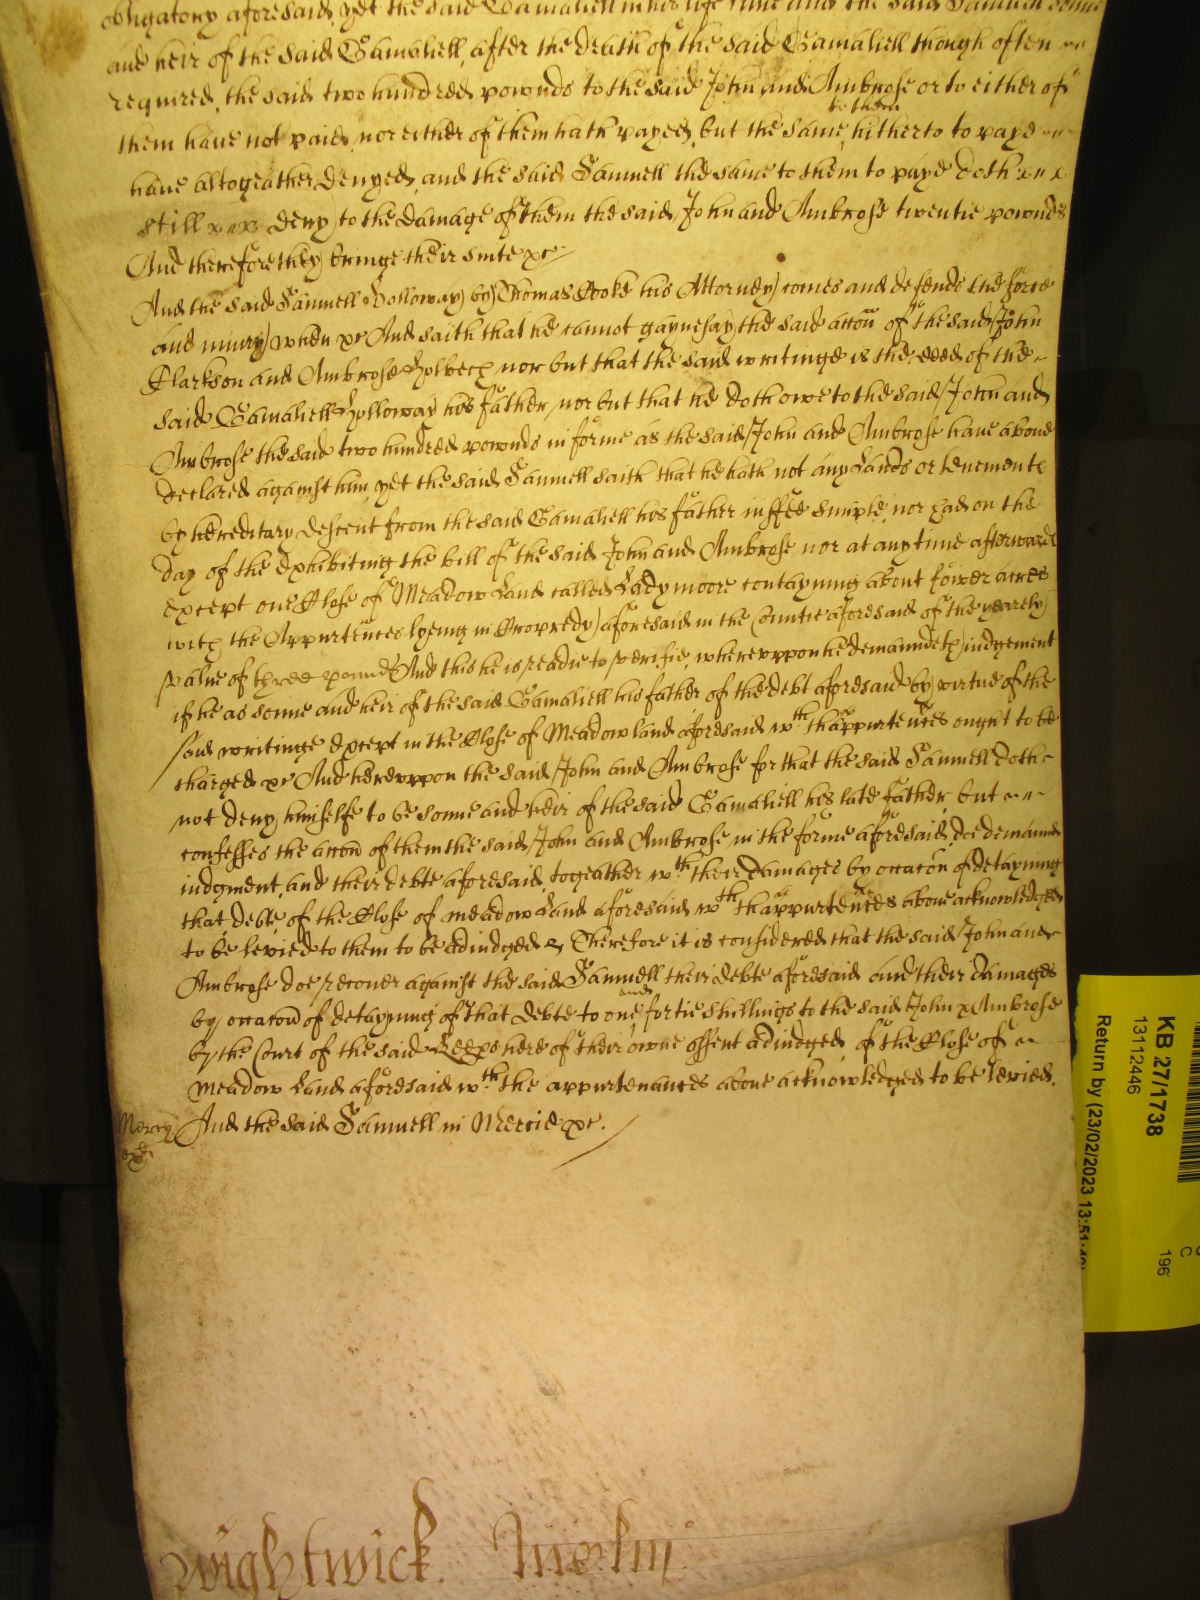 obligatory aforesaid, yet the said Gamaliell in his life time and the said Samuell sonne
and heir of the said Gamaliell, after the death of the said Gamaliell though often
required, the said two hundred pownds to the said John and Ambrose or to either of
to them
them have not paied, nor either of them hath payed, but the same hitherto to paye
have altogeather denyed, and the said Samuell the same to them to paye doth
still deny, to the damage of them the said John and Ambrose twentie pownds
And therefore they bringe their suite &c
And the said Samuell Holloway by Thomas Cooke his Attorney comes and defends the force
and iniury when &c And saith that he cannot gaynesay the said accōn of the said John
Clarkson and Ambrose Holbech nor but that the said writinge is the deed of the
said Gamaliell Holloway his father, nor but that he doth owe to the said John and
Ambrose the said two hundred pownds in forme as the said John and Ambrose have above
declared against him, yet the said Samuell saith that he hath not any Lands or tenements
by hereditary descent from the said Gamaliell his father in ffee simple, nor had on the
day of the exhibiting the bill of the said John and Ambrose nor at any time afterwards
except one Close of Meadow Land called Ladymoore contayning about fower acres
with the Appurtences lyeing in Cropredy aforesaid in the Countie aforesaid of the yearely
value of three pounds And this he is readie to verifie, whereuppon he demaundeth iudgement
if he as sonne and heir of the said Gamaliell his father of the debt aforesaid by virtue of the
said writinge except in the Close of Meadow land aforesaid wth thappurtences ought to be
charged &c And hereuppon the said John and Ambrose for that the said Samuell doth
not deny himselfe to be sonne and heir of the said Gamaliell his late father but
confesses the accōn of them the said John and Ambrose, in the forme aforesaid, doe demaund
iudgment, and their debte aforesaid, togeather wth their damages by occacōn of detayning
that debte, of the Close of meadow Land aforesaid wth thappurtences above acknowledged
to be levied to them to be adiudged &c Therefore it is considered that the said John and
Ambrose doe recouer against the said Samuell their debte aforesaid and their damages
and
by occacōn of detayning of that debte to one fortie shillings to the said John & Ambrose
by the Court of the said Keeps here of their owne assent adiudged, of the Close of
meadow Land aforesaid wth the appurtenances above acknowledged to be levied.
Mercy
And the said Samuell in Mercie &c.
Wightwick.
KB 27/1738
13112446
Return by (23/02/2023 13:51:
196
C